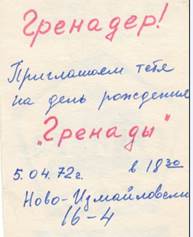 Гренадер!
Приглашаем тебя
на день рождения
"Гренады"
5.04.72г. в 18 30
Ново-Измайловский
16-4